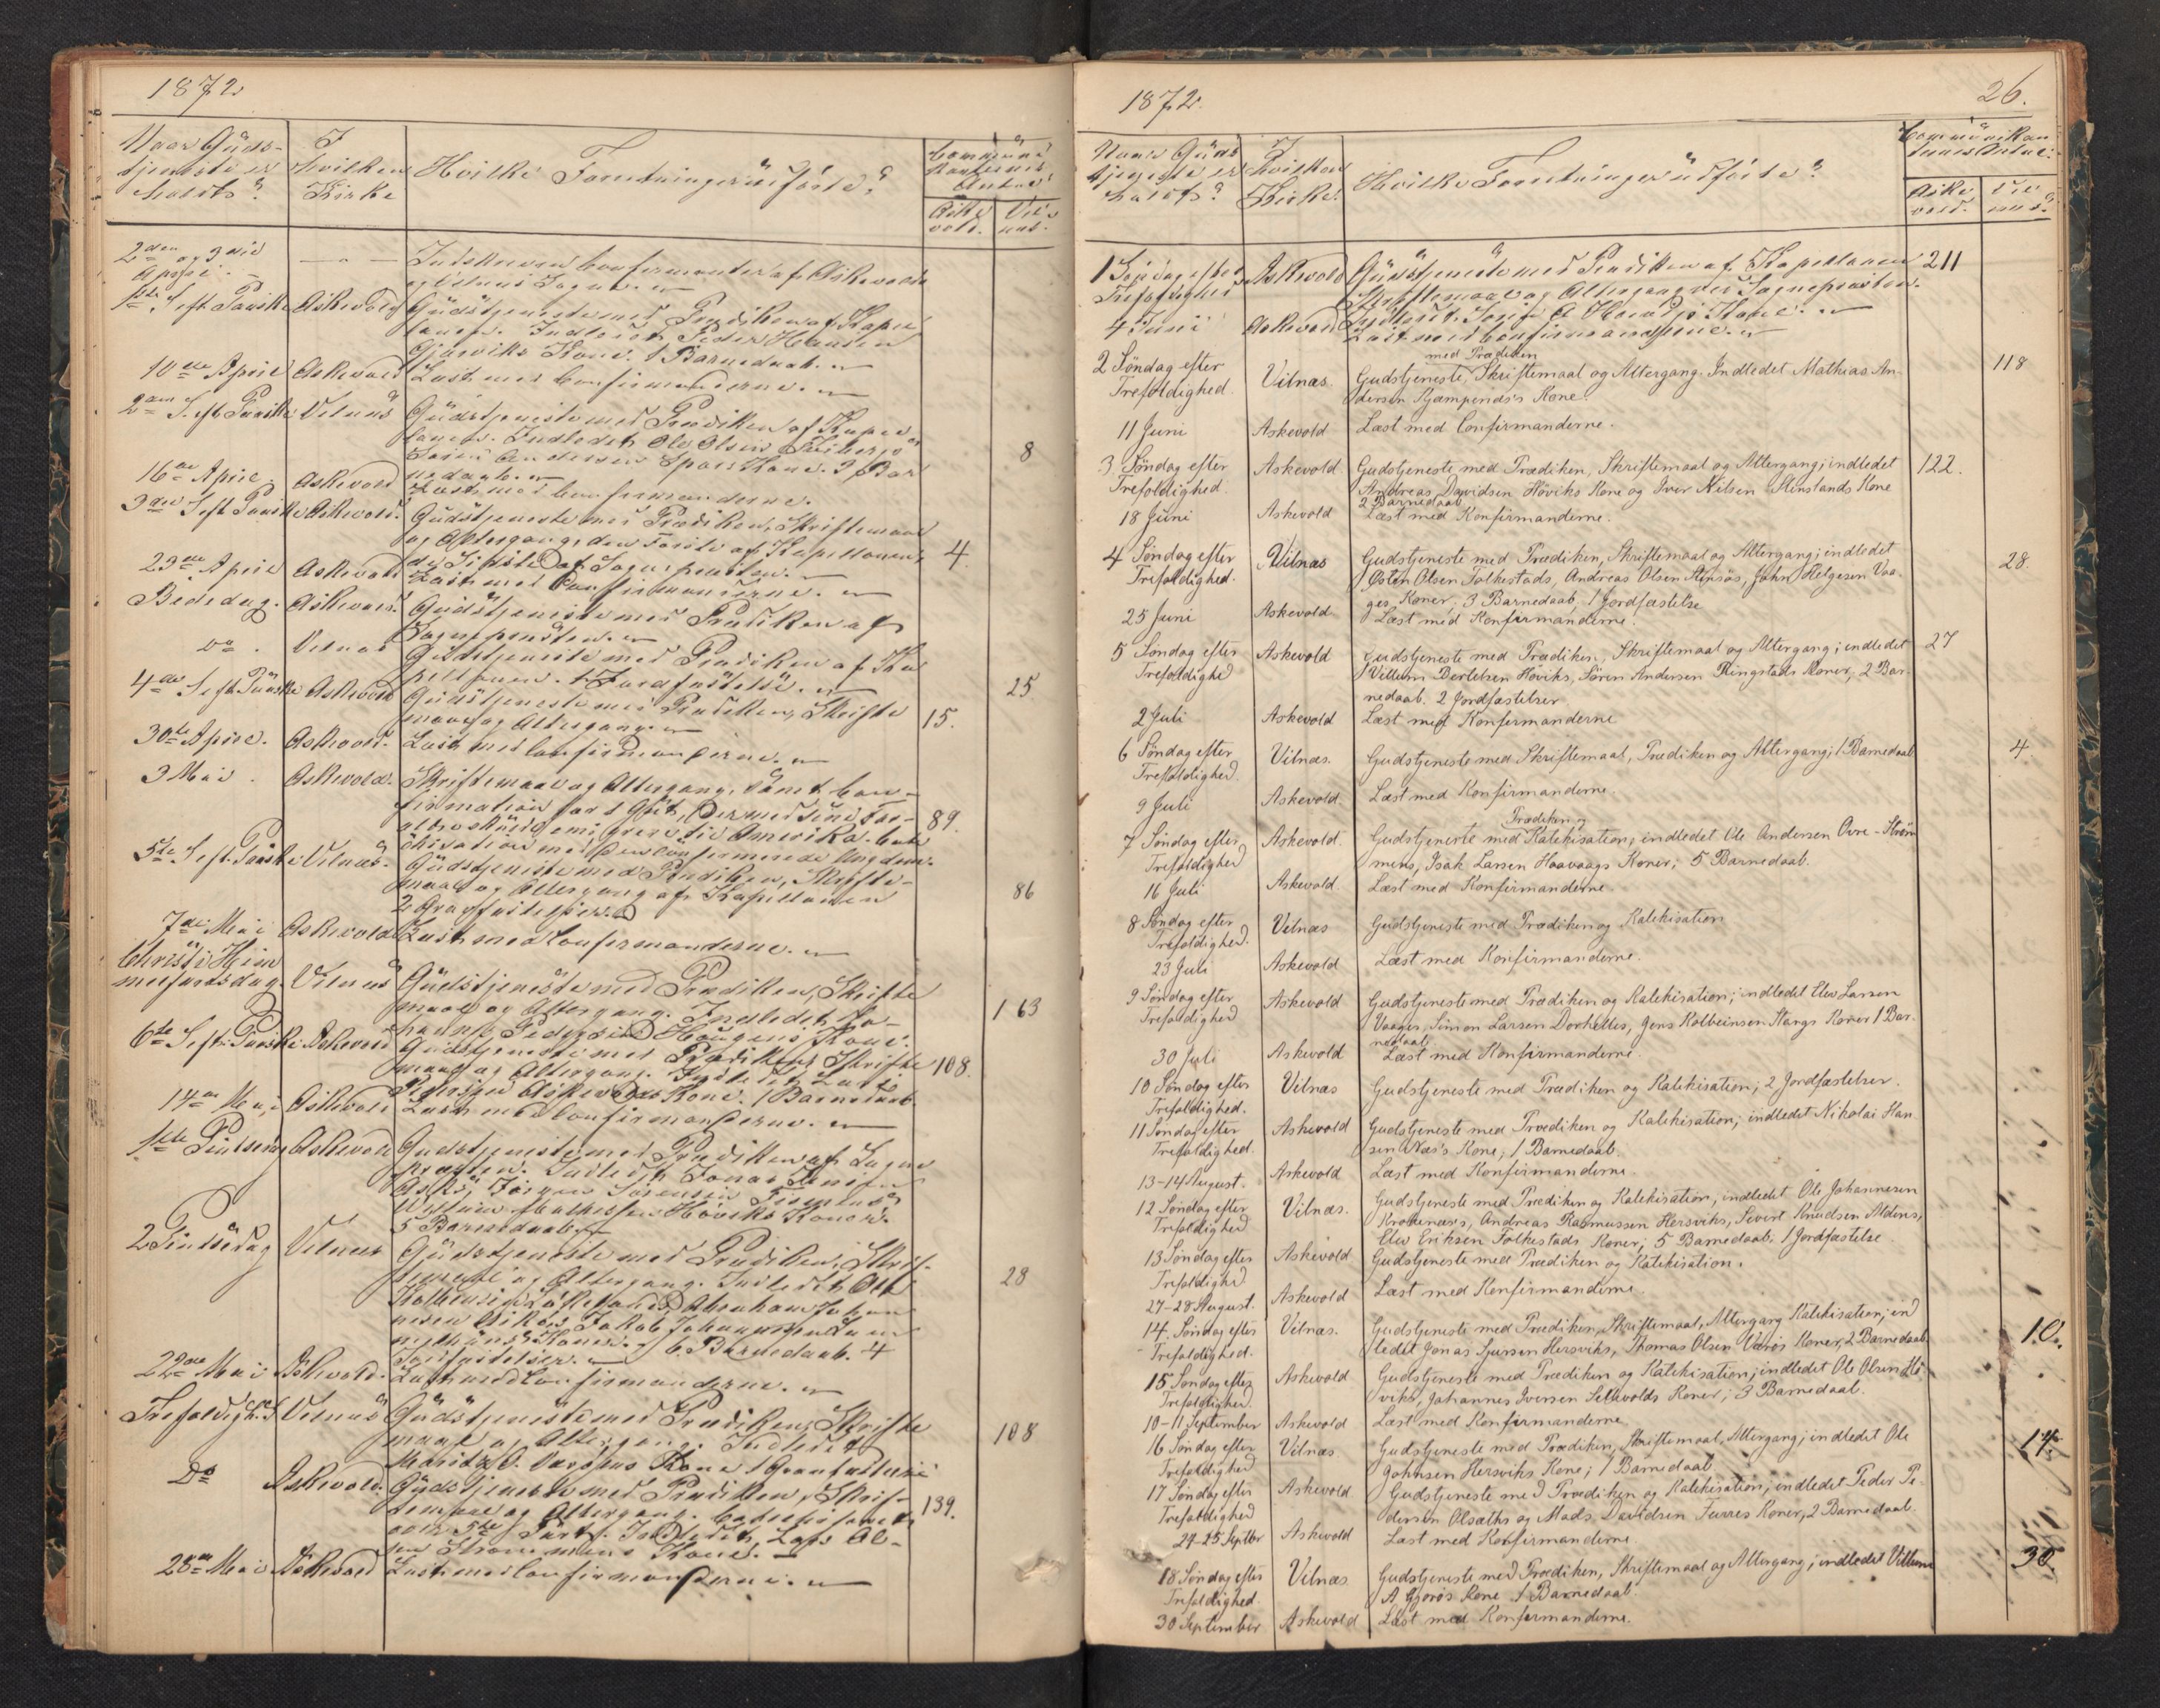 1872
Naar Guds-
tjeneste er
holdt?
I
hvilken
Kirke
Hvilke Forretninger udførte?
Communi-
kanternes
Antal
Aske-
vold.
Vil-
nes.
2den og 3die
April.
Indskreven Confirmanter af Askevold
og Vilnes Sogne.
1ste S. eft. Paaske
Askevold
Gudstjeneste med Prædiken af Kapel-
lanen. Indledet Peder Hansen
Kone. 1 Barnedaab.
10de April
Askevold
Læst med Confirmanderne.
2den S. eft. Paaske
Vilnes
Gudstjeneste med Prædiken af Kapel-
lanen. Indledet Ole Olsen
Andersen Kone. 2 Bar-
nedaab.
8
16de April
Askevold
Læst med Confirmanderne.
3die S. eft. Paaske
Askevold.
Gudstjeneste med Prædiken, Skriftemaal
og Altergang, den Første af Kapellanen,
de Sidste af Sognepresten.
4.
23de April
Askevold
Læst med Confirmanderne.
Bededag.
Askevold.
Gudstjeneste med Prædiken af
Sognepresten.
Do.
Vilnes
Gudstjeneste med Prædiken af Ka-
pellanen. 1 Jordfæstelse.
4de S. eft. Paaske
Askevold
Gudstjeneste med Prædiken, Skrifte-
maal og Altergang.
15.
25
30te April.
Askevold.
Læst med Confirmanderne.
3 Mai.
Askevold.
Skriftemaal og Altergang, samt Con-
firmation for 1 Gut, der med sine For-
ældre skulde emigrere til Amerika. Cate-
chisation med den confirmerede Ungdom.
89.
5te S. eft. Paaske
Vilnes.
Gudstjeneste med Prædiken, Skrifte-
maal og Altergang af Kapellanen
2 Gravfæstelser.
86
7de Mai
Askevold
Læst med Confirmanderne.
Christi Him-
melfartsdag.
Vilnes
Gudstjeneste med Prædiken, Skrifte-
maal og Altergang. Indledet Jo-
hannes Pedersen Haugens Kone.
163
6te S. eft. Paaske
Askevold
Gudstjeneste med Prædiken, Skrifte-
maal og Altergang. Indledet Lars
Askevolds Kone. 1 Barnedaab.
108.
14de Mai
Askevold
Læst med Confirmanderne.
1ste Pintsedag
Askevold
Gudstjeneste med Prædiken af Sogne-
presten. Indledet Jonas Jensen
Askø, Jørgen Sørensen
Villum Mathissen Høviks Koner.
5 Barnedaab.
2 Pintsedag
Vilnes
Gudstjeneste med Prædiken, Skrif-
temaal og Altergang. Indledet Ole
Abraham Johan-
nesen Jakob Johannessen
Koner. 6 Barnedaab. 4
Jordfæstelser.
28
22de Mai
Askevold.
Læst med Confirmanderne.
Trefoldighed
Vilnes
Gudstjeneste med Prædiken, Skrifte-
maal og Altergang. Indledet
Kone 1 Gravfæstelse
108
Do
Askevold.
Gudstjeneste med Prædiken, Skrif-
temaal og Altergang. Catechisation
over 5te Part. Indledet Lars Ol-
sen Strømmens Kone.
139.
28de Mai
Askevold
Læst med Confirmanderne.
1872.
26.
Naar Guds
tjeneste er
holdt?
I
hvilken
Kirke.
Hvilke Forretninger udførte?
Communikan-
ternes Antal.
Aske-
vold.
Vil-
nes.
1 Søndag efter
Trefoldighed
Askevold
Gudstjeneste med Prædiken af Kapellanen
Skriftemaal og Altergang ved Sognepresten.
Indledet Kone.
211
4 Juni
Askevold
Læst med Confirmanderne.
2 Søndag efter
Trefoldighed.
Vilnæs.
med Prædiken
Gudstjeneste, Skriftemaal og Altergang. Indledet Mathias An-
dersen Kjempenæs's Kone.
118
11 Juni
Askevold
Læst med Confirmanderne.
3 Søndag efter
Trefoldighed.
Askevold.
Gudstjeneste med Prædiken, Skriftemaal og Altergang; indledet
Andreas Davidsen Höviks Kone og Iver Nilsen Stenslands Kone
2 Barnedaab
122.
18 Juni
Askevold
Læst med Konfirmanderne.
4 Søndag efter
Trefoldighed.
Vilnæs
Gudstjeneste med Prædiken, Skriftemaal og Altergang; indledet
Østen Olsen Folkestads, Andreas Olsen Stensøs, John Helgesen Vaa-
ges Koner; 3 Barnedaab, 1 Jordfæstelse
28.
25 Juni
Askevold
Læst med Konfirmanderne.
5 Søndag efter
Trefoldighed
Askevold
Gudstjeneste med Prædiken, Skriftemaal og Altergang; indledet
Villum Bertelsen Höviks, Sören Andersen Ringstads Koner; 2 Bar-
nedaab. 2 Jordfæstelser
27
2 Juli
Askevold
Læst med Konfirmanderne
6 Søndag efter
Trefoldighed.
Vilnæs.
Gudstjeneste med Skriftemaal, Prædiken og Altergang; 1 Barnedaab
4.
9 Juli
Askevold.
Læst med Konfirmanderne.
7 Søndag efter
Trefoldighed
Askevold.
Prædiken og
Gudstjeneste med Katekisation; indledet Ole Andersen Övre-Ström-
mens, Isak Larsen Haavaags Koner; 5 Barnedaab.
16 Juli
Askevold.
Læst med Konfirmanderne.
8 Søndag efter
Trefoldighed.
Vilnæs
Gudstjeneste med Prædiken og Katekisation
23 Juli
Askevold
Læst med Konfirmanderne.
9 Søndag efter
Trefoldighed
Askevold
Gudstjeneste med Prædiken og Katekisation; indledet Elev Larsen
Vaages, Simon Larsen Dorhelles, Jens Kolbeinsen Stangs Koner 1 Bar-
nedaab
30 Juli
Askevold
Læst med Konfirmanderne.
10 Søndag efter
Trefoldighed.
Vilnæs
Gudstjeneste med Prædiken og Katekisation; 2 Jordfæstelser.
11 Søndag efter
Trefoldighed.
Askevold
Gudstjeneste med Prædiken og Katekisation; indledet Nikolai Han-
sen Næs's Kone; 1 Barnedaab.
13-14 August.
Askevold
Læst med Konfirmanderne.
12 Søndag efter
Trefoldighed
Vilnæs.
Gudstjeneste med Prædiken og Katekisation, indledet Ole Johannesen
Krakenæs's, Andreas Rasmussen Hersviks, Sivert Knudsen Aldens,
Elev Eriksen Folkestads Koner; 5 Barnedaab. 1 Jordfæstelse.
13 Søndag efter
Trefoldighed
Askevold
Gudstjeneste med Prædiken og Katekisation.
27-28 August.
Askevold
Læst med Konfirmanderne.
14. Søndag efter
Trefoldighed.
Vilnæs.
Gudstjeneste med Prædiken, Skriftemaal, Altergang Katekisation; ind
ledet Jonas Sjursen Hersviks, Thomas Olsen Værøs Koner, 2 Barnedaab.
10.
15 Søndag efter
Trefoldighed.
Askevold
Gudstjeneste med Prædiken og Katekisation; indledet Ole Olsen Hö-
viks, Johannes Iversen Sellevolds Koner; 3 Barnedaab.
10-11 September
Askevold
Læst med Konfirmanderne
16 Søndag efter
Trefoldighed
Vilnæs
Gudstjeneste med Prædiken, Skriftemaal, Altergang; indledet Ole
Johnsen Hersviks Kone; 1 Barnedaab
14.
17 Søndag efter
Trefoldighed
Askevold
Gudstjeneste med Prædiken og Katekisation; indledet Peder Pe-
dersen Olsæths og Mads Davidsen Furres Koner, 2 Barnedaab.
24-25 Septbr
Askevold
Læst med Konfirmanderne
18 Søndag efter
Trefoldighed.
Vilnæs
Gudstjeneste med Prædiken, Skriftemaal og Altergang; indledet Villum
A Gjørøs Kone 1 Barnedaab.
30
30 September
Askevold
Læst med Konfirmanderne.